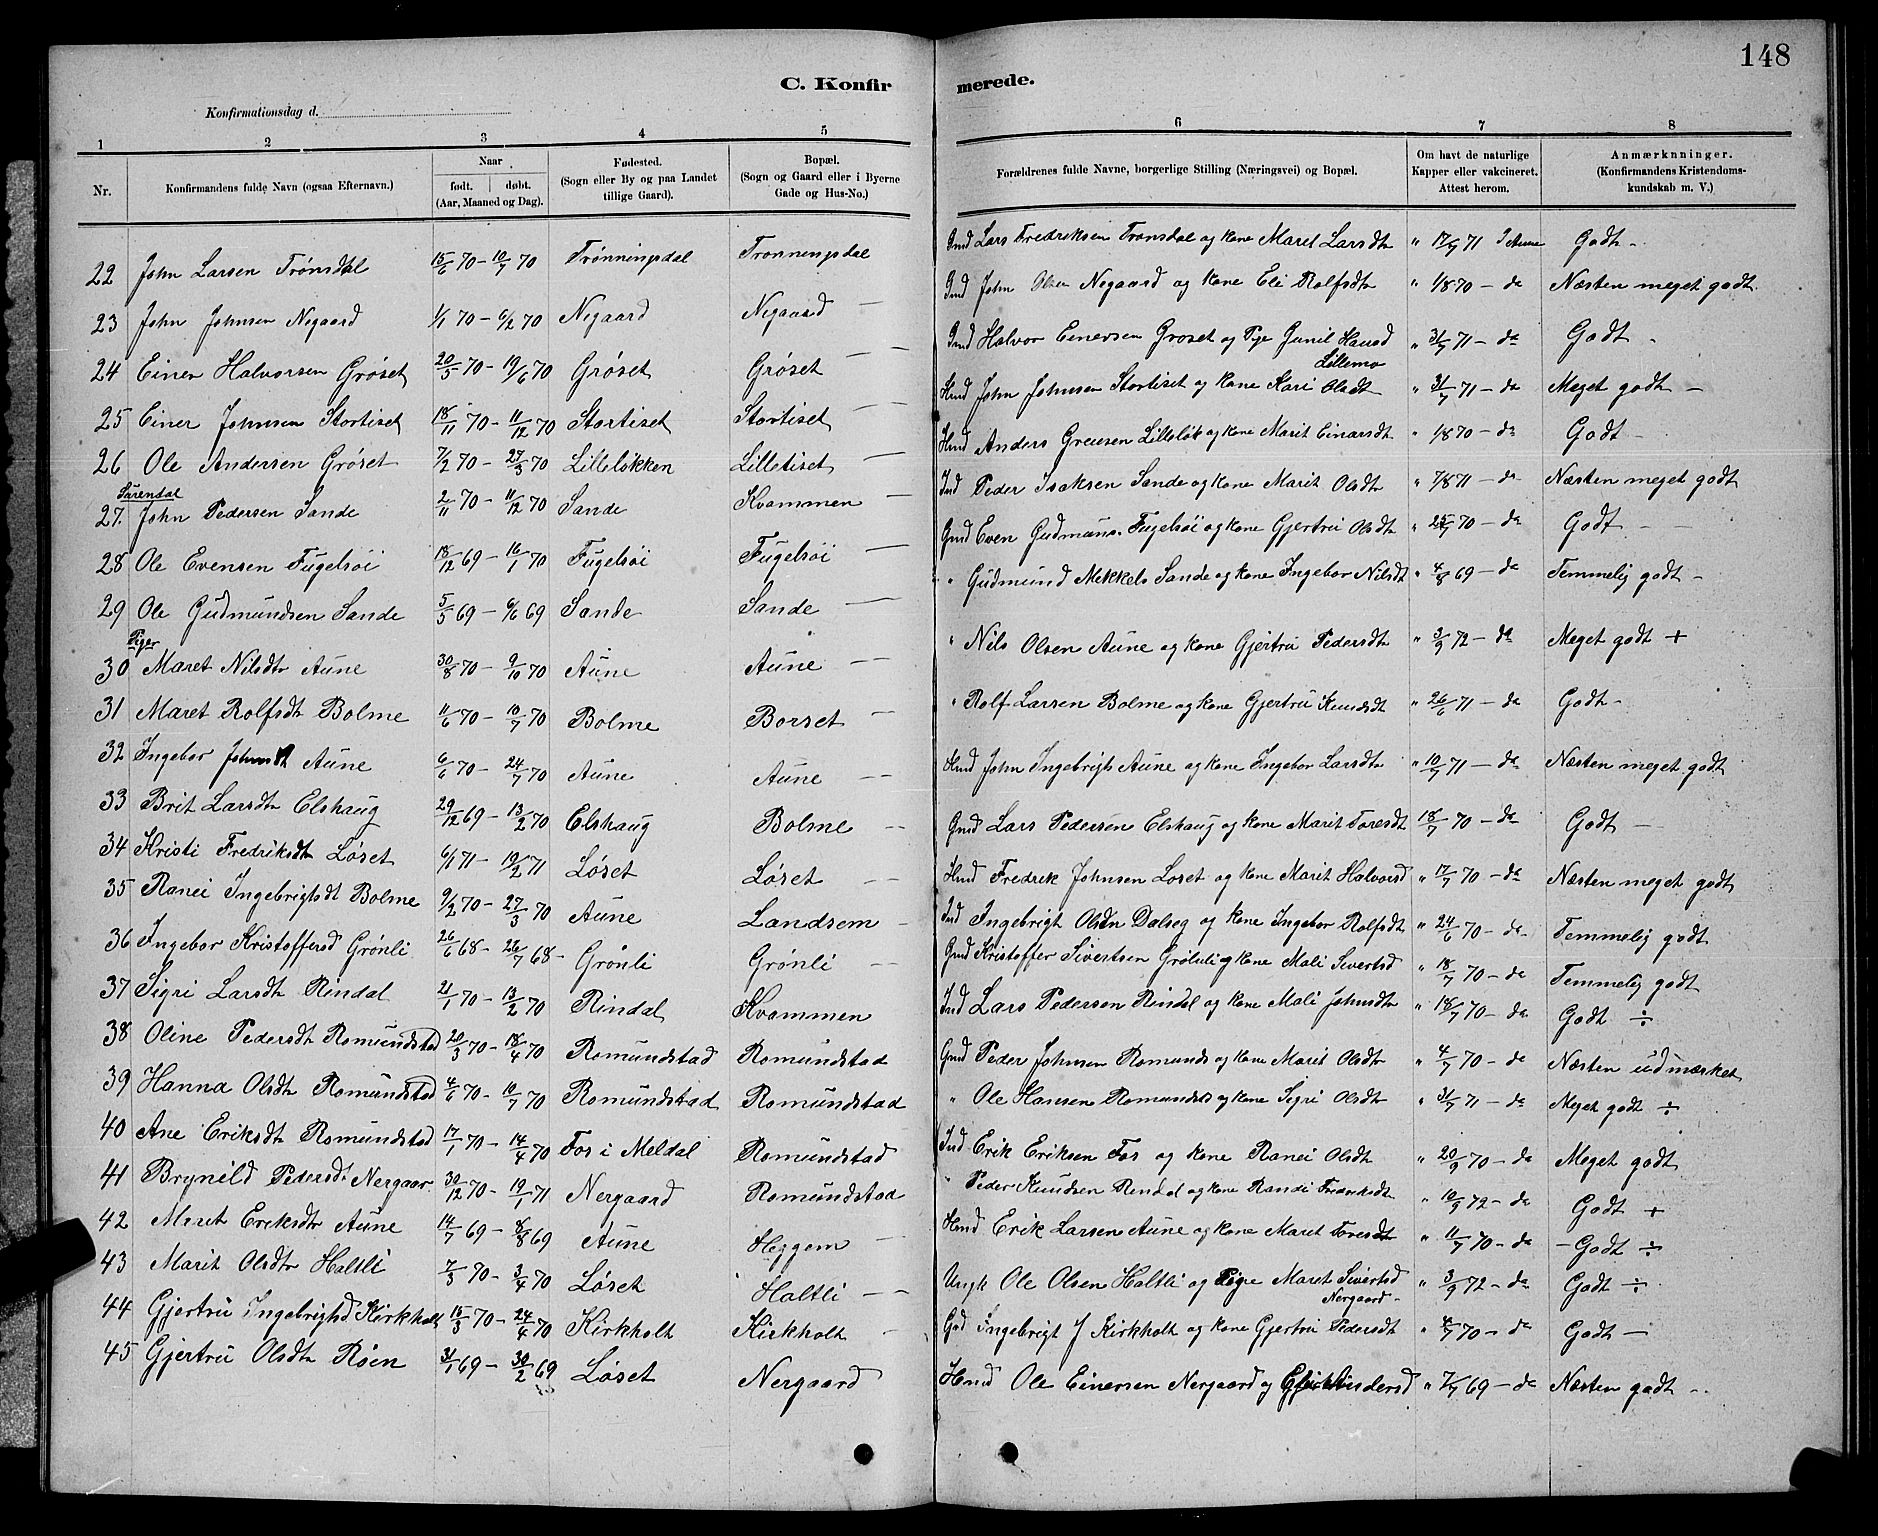 148
C. Konfir merede.
Konfirmationsdag d.
1 2 3 4 5 6 7 8
Nr. Konfirmandens fulde Navn (ogsaa Efternavn.) Naar født. døbt. (Aar, Maaned og Dag). Fødested. (Sogn eller By og paa Landet tillige Gaard). Bopæl. (Sogn og Gaard eller i Byerne Gade og Hus-No.) Forældrenes fulde Navne, borgerlige Stilling (Næringsvei) og Bopæl. Om havt de naturlige Kapper eller vakcineret. Attest herom. Anmærknninger. (Konfirmandens Kristendomskundskab m. V.)
22 John Larsen Trønsdal 15/6 70 – 10/7 70 Trønningsdal Tronningsdal Gmd Lars Fredriksen Tronsdal og kone Marit Larsdtr " 17/7 71 Godt -
23 John Johnsen Negaard 1/1 70 – 6/2 70 Negaard Negaard — Gmd John Olsen Negaard og kone Eli Rolfsdtr " 1/8 70 – do Næsten meget godt.
24 Einer Halvorsen Grøset 20/5 70 – 19/6 70 Grøset Grøset — Gmd Halvor Einersen Groset og Pige Gunil Hansd Lillemo " 31/7 71 – do Godt -
25 Einer Johnsen Stortiset 18/11 70 – 11/12 70 Stortiset Stortiset — Hmd John Johnsen Stortiset og kone Kari Olsdt " 31/7 71 – do Meget godt –
26 Ole Andersen Grøset 7/2 70 – 27/3 70 Lilleløkken Lilletiset — Hmd Anders Greusen Lilleløk og kone Marit Einarsdt " 1/8 70 – do Godt –
Sørendal
27. John Pedersen Sande 2/11 70 – 11/12 70 Sande Kvammen – Ind Peder Isaksen Sande og kone Marit Olsdt " 7/8 71 – do Næsten meget godt
28 Ole Evensen Fugelsøi 18/12 69 – 16/1 70 Fugelsøi Fugelsøi — Gmd Even Gudmuns. Fugelsøi og kone Gjertru Olsdt " 25/7 70 – do Godt –
29 Ole Gudmundsen Sande 5/5 69 – 6/6 69 Sande Sande — " Gudmund Mekkels Sande og kone Ingebor Nilsdt " 4/8 69 – do Temmelig godt –
Piger
30 Maret Nilsdtr Aune 30/8 70 – 9/10 70 Aune Aune — " Nils Olsen Aune og kone Gjertru Pedersdt " 3/9 72 – do Meget godt +
31 Maret Rolfsdt Bolme 11/6 70 – 10/7 70 Bolme Borset — " Rolf Larsen Bolme og kone Gjertru Knudsdt " 26/6 71 – do Godt –
32 Ingebor Johnsdt Aune 6/6 70 – 24/7 70 Aune Aune — Hmd John Ingebrigts Aune og kone Ingebor Larsdtr " 10/7 71 – do Næsten meget godt
33 Brit Larsdtr Elshaug 29/12 69 – 13/2 70 Elshaug Bolme — Gmd Lars Pedersen Elshaug og kone Marit Toresdt 18/7 70 – do Godt —
34 Kristi Fredriksdtr Løset 6/1 71 – 19/2 71 Løset Løset — Hmd Fredrik Johnsen Loset og kone Marit Halvorsd " 17/7 70 – do Næsten meget godt
35 Ranei Ingebrigtsdt Bolme 9/2 70 – 27/3 70 Aune Landsem – Ind Ingebrigt Olsen Dalseg og kone Ingebor Rolfsdt " 24/6 70 – do Temmelig godt
36 Ingebor Kristoffersd Grønli 26/6 68 – 26/7 68 – Grønli Grønli — Gmd Kristoffer Sivertsen Grønli og kone Mali Sivertsd " 18/7 70 – do Temmelig godt
37 Sigri Larsdt Rindal 21/1 70 – 13/2 70 Rindal Kvammen Ind Lars Pedersen Rindal og kone Mali Johnsdtr " 18/7 70 – do Godt ÷
38 Oline Pedersdt Romundstad 20/3 70 – 18/4 70 Romundstad Romundstad Gmd Peder Johnsen Romunds og kone Marit Olsdtr " 4/7 70 – do Næsten udmærket
39 Hanna Olsdt Romundstad 4/6 70 – 10/7 70 Romundstad Romundstad " Ole Hansen Romundsd og kone Sigri Olsdt " 31/7 71 – do Meget godt ÷
40 Ane Eriksdt Romundstad 17/1 70 – 14/4 70 Fos i Meldal Romundstad Ind Erik Eriksen Fos og kone Ranei Olsdt " 20/9 70 – do Meget godt
41 Brynild Pedersdt Nergaar 30/12 70 – 19/1 71 Nergaard Romundstad " Peder Knudsen Rendal og kone Randi Fredriksdt " 10/9 72 – do Godt +
42 Maret Eriksdtr Aune 14/7 69 – 8/8 69 Aune Heggem — Hmd Erik Larsen Aune og kone Maret Toresdt " 11/7 70 – do – Godt ÷
43 Marit Olsdtr Haltli 7/3 70 – 3/4 70 Løset Haltli — Ungk Ole Olsen Haltli og Pige Maret Sivertsd Nergaard – " 3/9 72 – do Godt ÷
44 Gjertru Ingebrigtsd Kirkholt 15/3 70 – 24/4 70 Kirkholt Kirkholt – Gmd Ingebrigt J Kirkholt og kone Gjertru Pedersdt " 4/7 70 – do Godt –
45 Gjertru Olsdtr Røen 31/1 69 – 30/2 69 Løset Nergaard Hmd Ole Einersen Nergaard og Andersd " 7/7 69 – do Næsten godt –